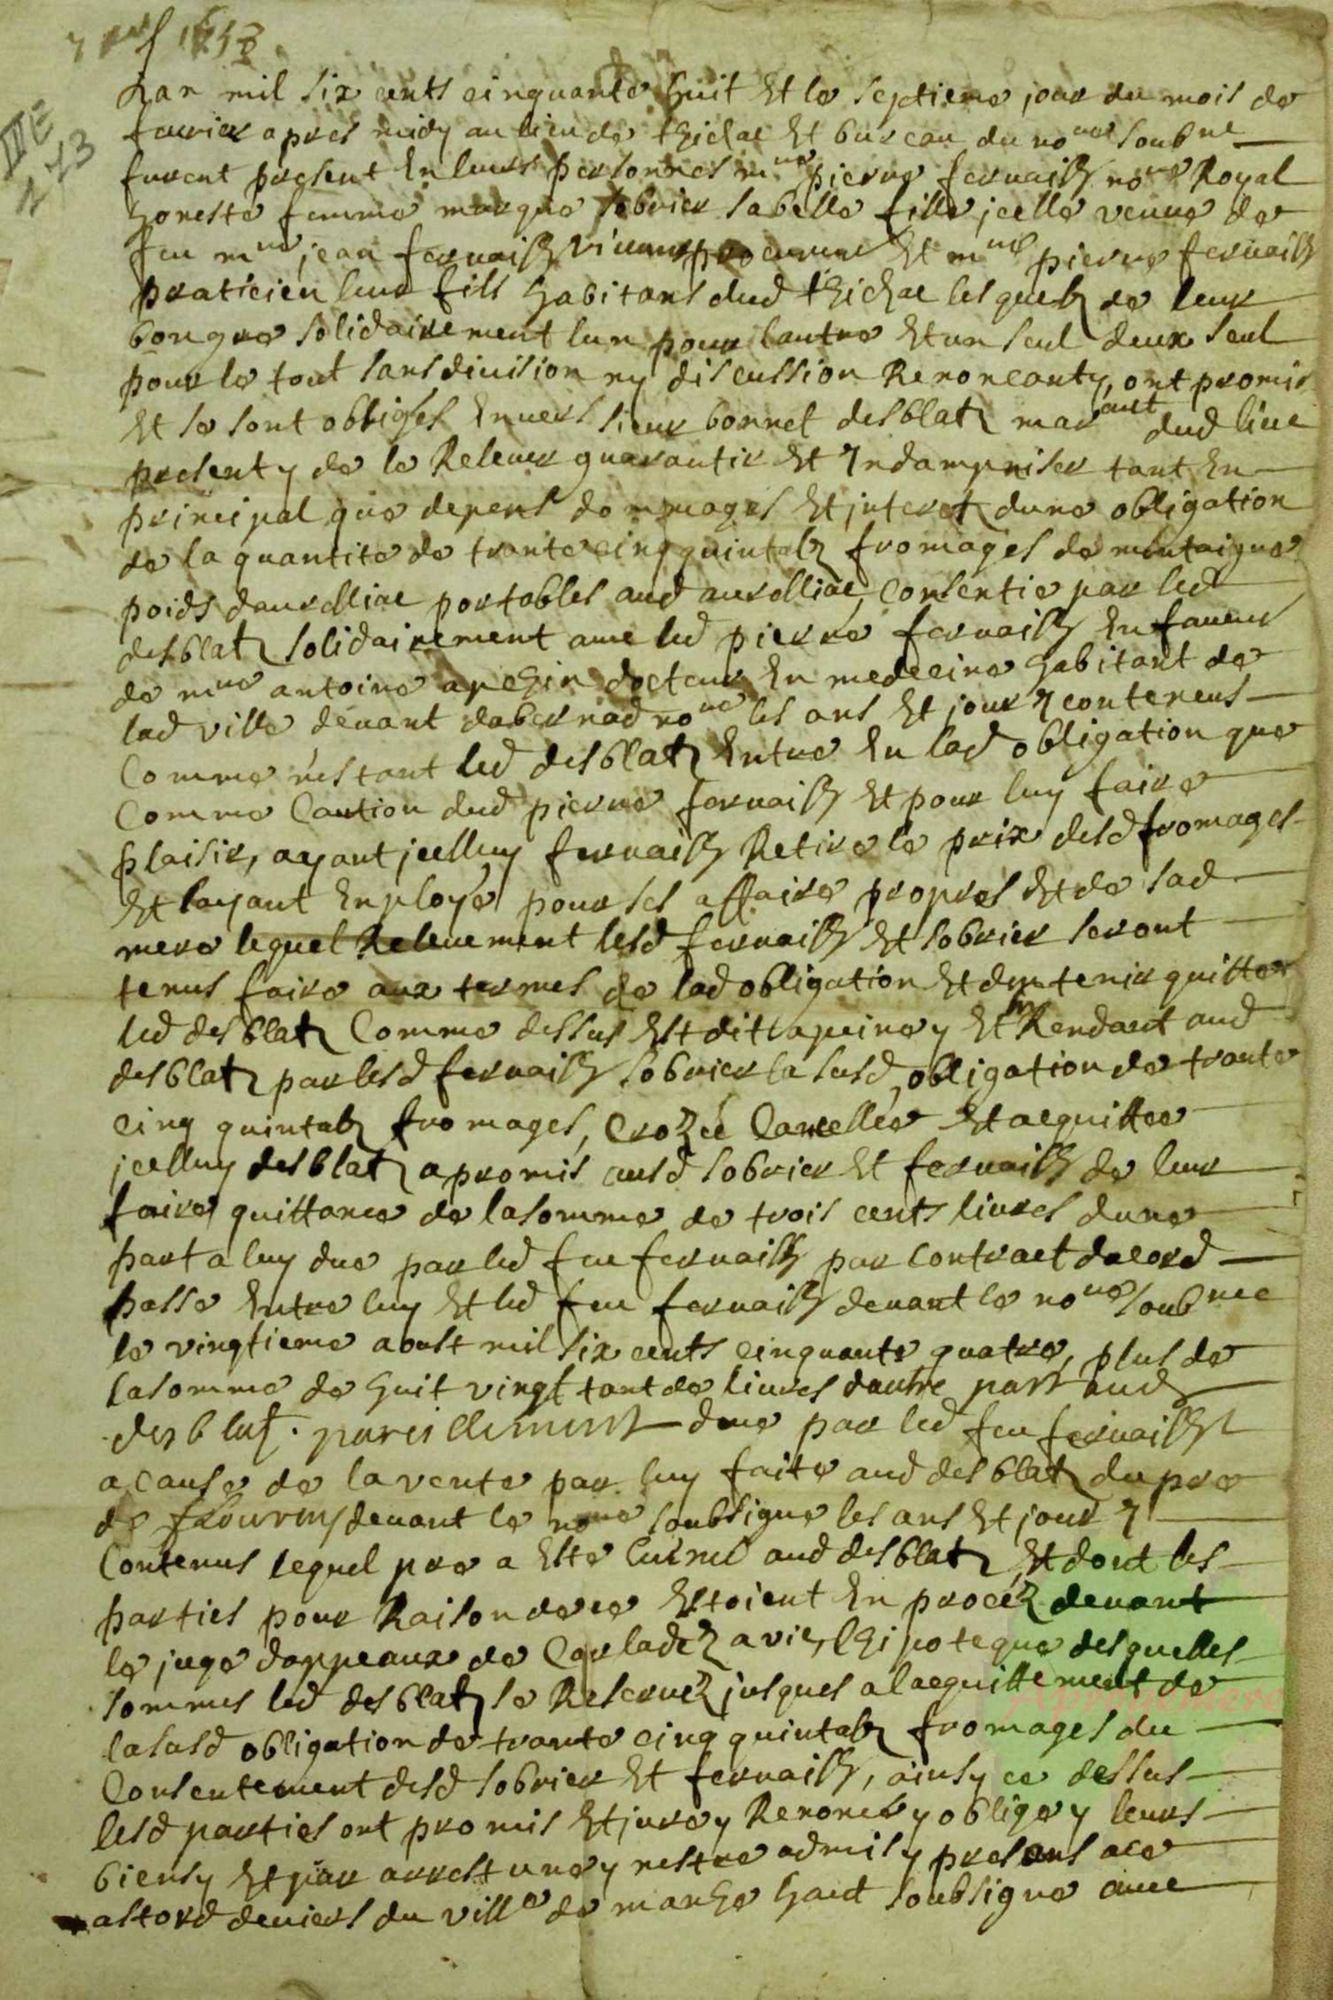 7 feuf 1658
IIIE 273
Lan mil six cents cinquante huit Et le septiene jour du mois de
feurier apres midy au lieu de thiezac Et bureau du no.re soub.ne
furent present En leurs personnes m.re pierre feruaiss no.re Royal
honeste femme marque sobrier sabelle fille jcelle veuue de
feu m.re jean feruaiss viuant procureur Et m.re pierre feruaiss
praticien leur fils habitans dud thiezac lesquelz de leur
bon gre solidairement lun pour lautre Et un seul deux seul
pour le tout sans diuision ny discussion Renoncantz, ont promis
Et se sont obliges Enuers sieur bonnet desblatz marchant dud lieu
present y de le Releuer guarantir Et Indampniser tant En
principal que depens dommages Et jnteretz dune obligation
de la quantite de trante cinq quintalz fromages de montaigne
poids daurelliac portables aud aurelliac, consentie par led
desblatz solidairement auec led pierre feruaiss En faueur
de m.re antoine apchin docteur En medecine habitant de
lad ville deuant dabernad no.re les ans Et jour y contenus
Comme n'estant led desblatz Entre En lad obligation que
Comme Caution dud pierre feruaiss Et pour luy faire
plaisir, ayant jcelluy feruaiss Retire le prix desd fromages
Et layant Employe pour ses affaire propres Et de sad
mere lequel Releuement lesd feruaiss Et sobrier seront
tenus faire aux termes de lad obligation Et den tenir quitte
led desblatz Comme dessus Est dit apeine y Et En Rendant aud
desblatz par lesd feruaiss sobrier la susd, obligation de trante
cinq quintalz fromages, Crozée Cancellée Et acquittee
jcelluy desblatz a promis ausd sobrier Et feruaiss de leur
faire quittance de la somme de trois cents liures dune
part a luy due par led feu feruaiss par Contract dacord
passe Entre luy Et led feu feruaiss deuant le no.re soub.ne
le vingtieme aoust mil six cents cinquante quatre, plus de
la somme de huit vingt tant de liures dautre part aud
desblatz pareillement due par led feu feruaiss
a cause de la vente par luy faite aud desblatz du pre
de deuant le no.re soubsigne les ans Et jour y
Contenus lequel pre a Este aud desblatz, Et dont les
parties pour Raison de ce Estoient En procéz deuant
le juge dappeaux de Carladéz a vic, lhipoteque desquelles
sommes led desblatz se Reseruéz jusques a lacquittement de
la susd obligation de trante cinq quintalz fromages du
Consentement desd sobrier Et feruaiss, ainsy ce dessus
lesd parties ont promis Et jure y Renoncés y oblige y leurs
biens y Et par arrest une y nestre admis y presens ace
astord deuiers du ville de manhe haut soubsigne auec